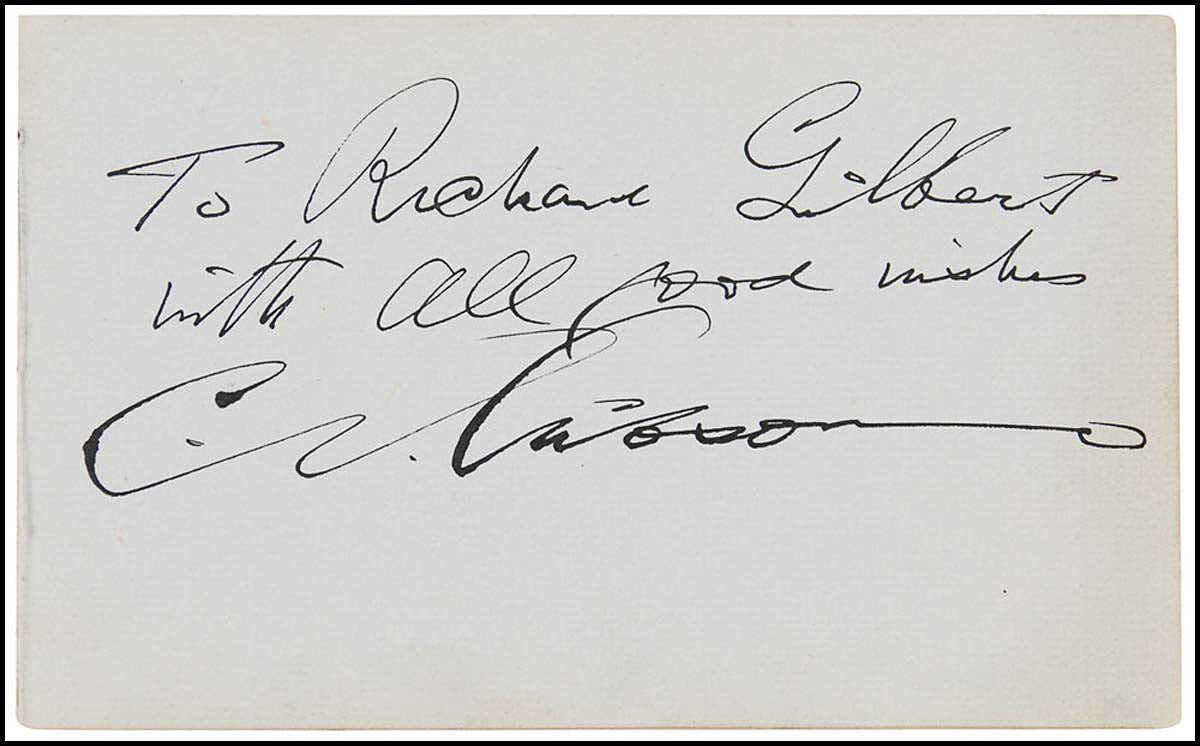 To Richard Gilbert
with all good wishes
C. Gibson